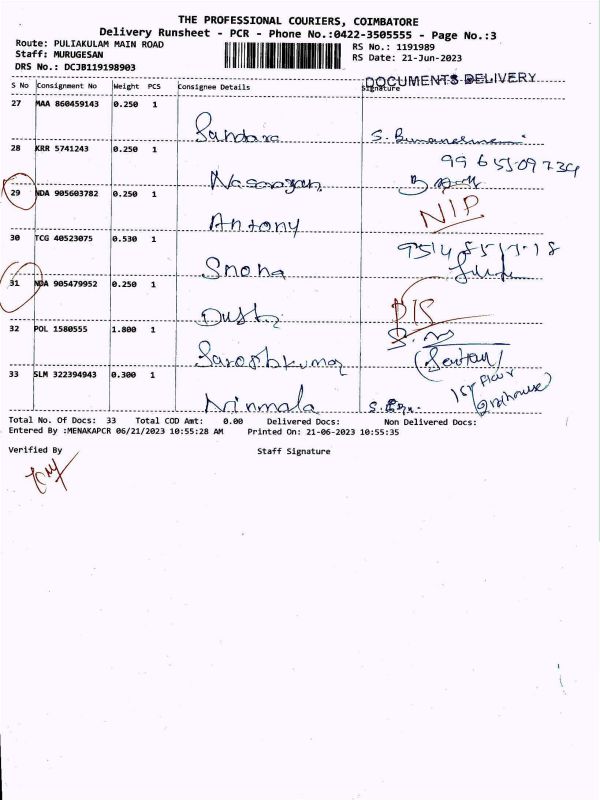 THE PROFESSIONAL COURIERS, COIMBATORE
Delivery Runsheet - PCR - Phone No.:0422-3505555 - Page No.:3
Route: PULIAKULAM MAIN ROAD
RS No.: 1191989
Staff: MURUGESAN
RS Date: 21-Jun-2023
DRS No.: DCJB119198903
DOCUMENTS DELIVERY
S No Consignment No Weight PCS Consignee Details Signature
27 MAA 860459143 0.250 1
Sandara S.
28 KRR 5741243 0.250 1
99 655 09734
29 NDA 905603782 0.250 1
Antony NIP
30 TCG 40523075 0.530 1
Snoha
31 NDA 905479952 0.250 1
D/S
32 POL 1580555 1.800 1
33 SLM 322394943 0.300 1
1st Floor
Ninmala
Total No. Of Docs: 33 Total COD Amt: 0.00 Delivered Docs: Non Delivered Docs:
Entered By :MENAKAPCR 06/21/2023 10:55:28 AM Printed On: 21-06-2023 10:55:35
Verified By Staff Signature